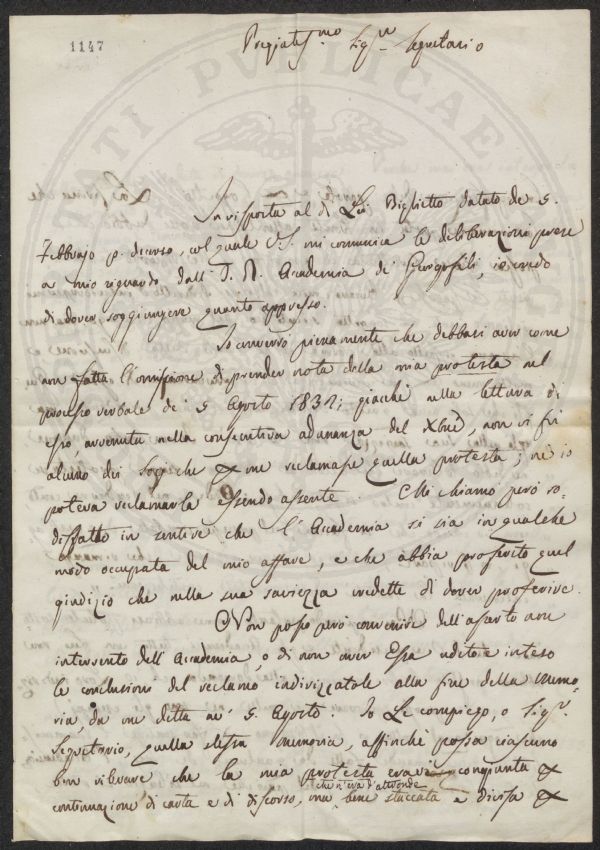 1147
Pregiatis.mo Sig.r Segretario
In risposta al di Lei Biglietto datato de' 5.
Febbrajo p. decorso, col quale V.S. mi comunica le deliberazioni prese
a mio riguardo dall' I. R. Academia de' Georgofili, io credo
di dover soggiungere quanto appresso.
Io converrò pienamente che debbasi aver come
non fatta l'omissione di prender nota della mia protesta nel
processo verbale de' 5 Agosto 1832; giacchè nella lettura di
esso, avvenuta nella consecutiva adunanza del Xbre, non vi fu
alcuno dei Socj che per me reclamasse quella protesta; nè io
poteva reclamarla essendo assente. Mi chiamo però so-
disfatto in sentire che l'Academia si sia in qualche
modo occupata del mio affare, e che abbia proferito quel
giudizio che nella sua saviezza credette di dover proferire.
Non posso però convenire dell'asserto non
intervento dell'Academia, o di non aver Essa udito e inteso
le conclusioni del reclamo indirizzatole alla fine della memo-
ria, da me detta ne' 5. Agosto. Io Le compiego, o Sig.r
Segretario, quella stessa memoria, affinchè possa ciascuno
ben rilevare che la mia protesta era congiunta per
che n'era d'altronde
continuazione di carta e di discorso, ma bene staccata e divisa per